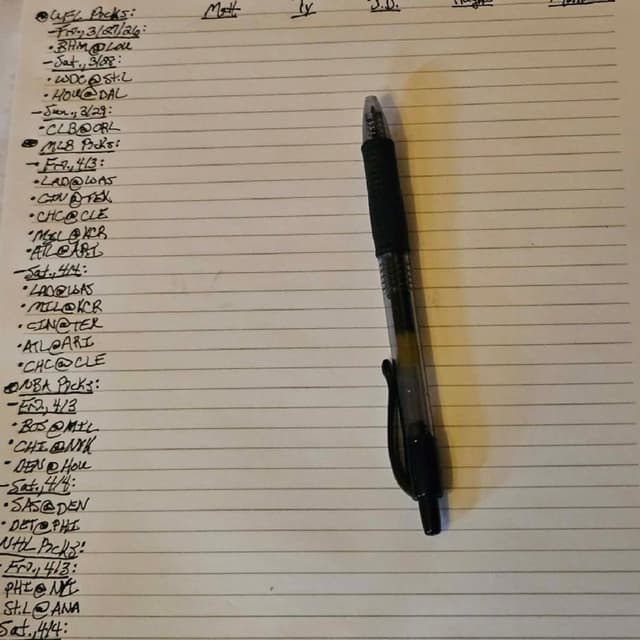 UFL Picks: Matt Ty J.D.
- Fri, 3/27/26:
• BHM@LOU
- Sat., 3/28:
• WDC@St.L
• HOU@DAL
- Sun., 3/29:
• CLB@ORL
MLB Picks:
- Fri., 4/3:
• LAD@WAS
• CIN@TEX
• CHC@CLE
• MIL@KCR
• ATL@ARI
- Sat., 4/4:
• LAD@WAS
• MIL@KCR
• CIN@TER
• ATL@ARI
• CHC@CLE
NBA Picks:
- Fri, 4/3
• BOS@MIL
• CHI@NYK
• DEN@HOU
- Sat., 4/4:
• SAS@DEN
• DET@PHI
NHL Picks:
Fri., 4/3:
PHI@NYI
St.L@ANA
Sat., 4/4: